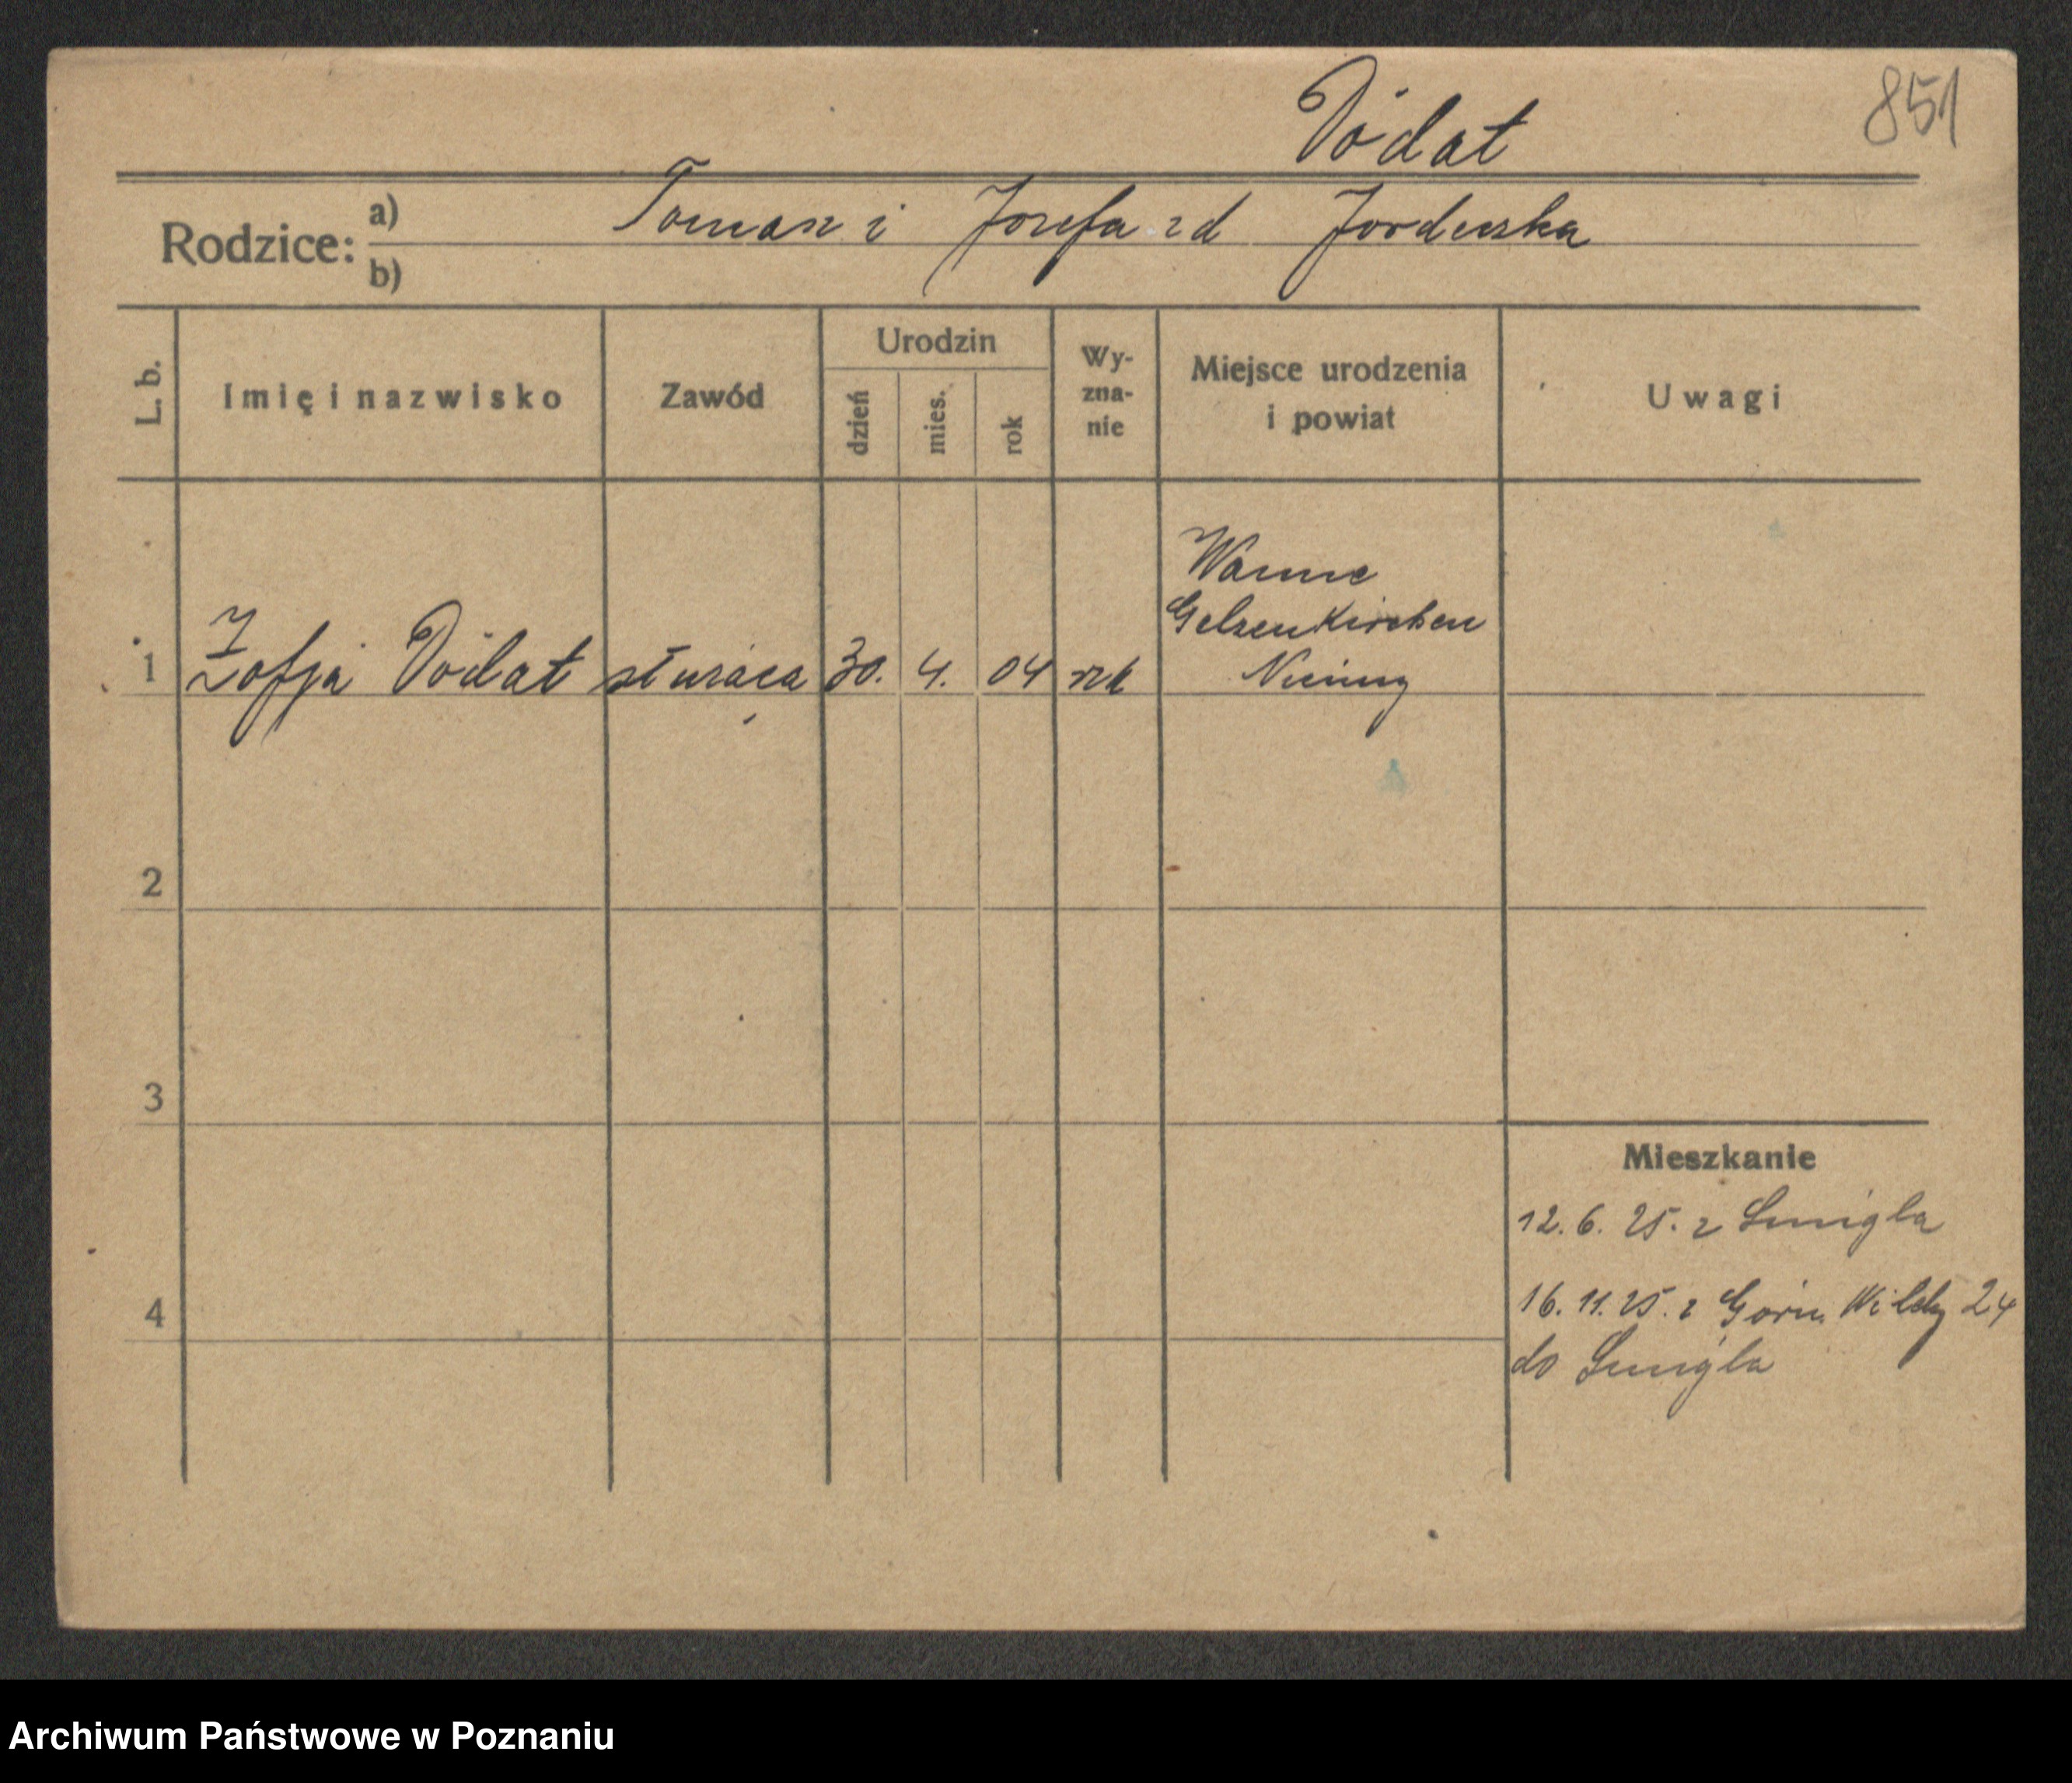 851
Vódat
Rodzice: a) b)
Tomasz i Józefa zd Jordeczka
L. b.
Imię i nazwisko
Zawód
Urodzin
dzień
mies.
rok
Wy-
zna-
nie
Miejsce urodzenia
i powiat
Uwagi
1 Zofja Vódat służąca 30. 4. 04 rzk
Wanne
Gelsenkirchen
Niemcy
2
3
4
Mieszkanie
12. 6. 25. z Śmigla
16. 11. 25. z Górn. Wildy 24
do Śmigla
Archiwum Państwowe w Poznaniu